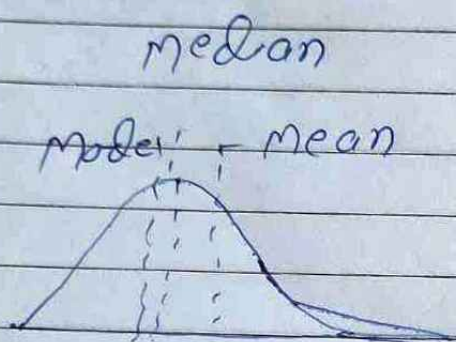 median
mode mean